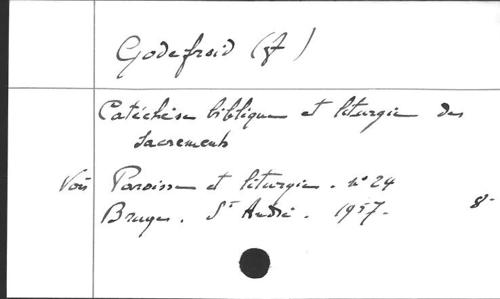 Godefroid (J)
Catéchèse biblique et liturgie des
sacrements
Voir Paroisse et liturgie. n° 24
Bruges. St André. 1957. 8°